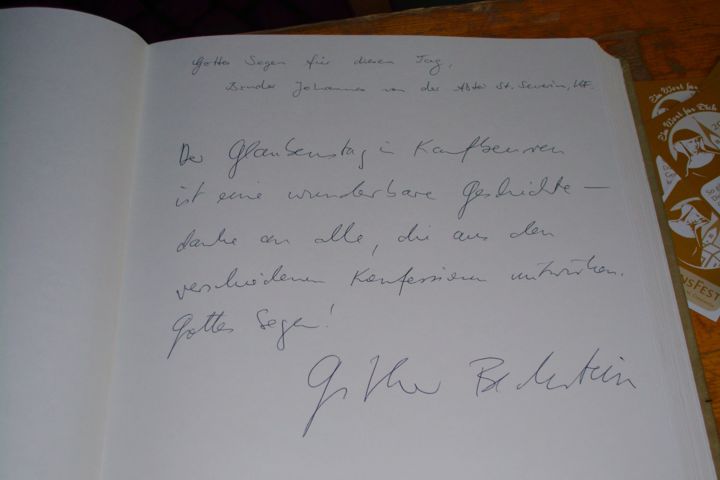 Gottes Segen für diesen Tag,
Bruder Johannes von der Abtei St. Severin, KF.
Der Glaubenstag in Kaufbeuren
ist eine wunderbare Geschichte –
danke an alle, die aus den
verschiedenen Konfessionen mitwirken.
Gottes Segen!
Günther Beckstein
Ein Wort für Dich
Ein Wort für Dich
NSFEST